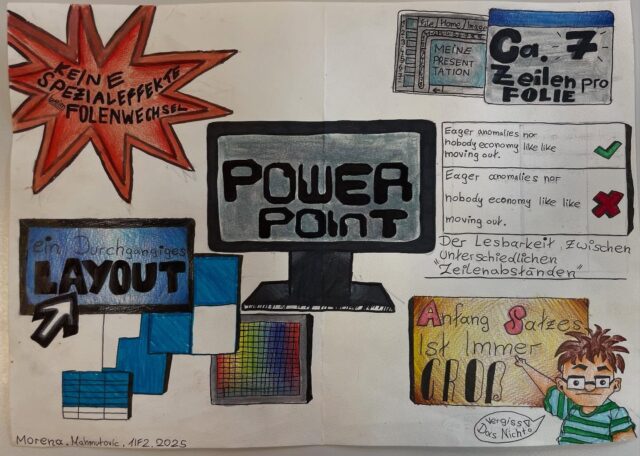 KEINE
SPEZIALEFFEKTE
beim
FOLIENWECHSEL
File / Home /
MEINE
PRESEN
TATION
Ca. 7
Zeilen pro
FOLIE
POWER
POINT
Eager anomalies nor
nobody economy like like
moving out.
Eager anomalies nor
nobody economy like like
moving out.
Der Lesbarkeit, zwischen
Unterschiedlichen
"Zeilenabständen"
ein Durchgängiges
LAYOUT
Anfang Satzes
Ist Immer
GROß
Vergiss
Das Nicht!
Morena, Mahmutovic, 1IF2, 2025